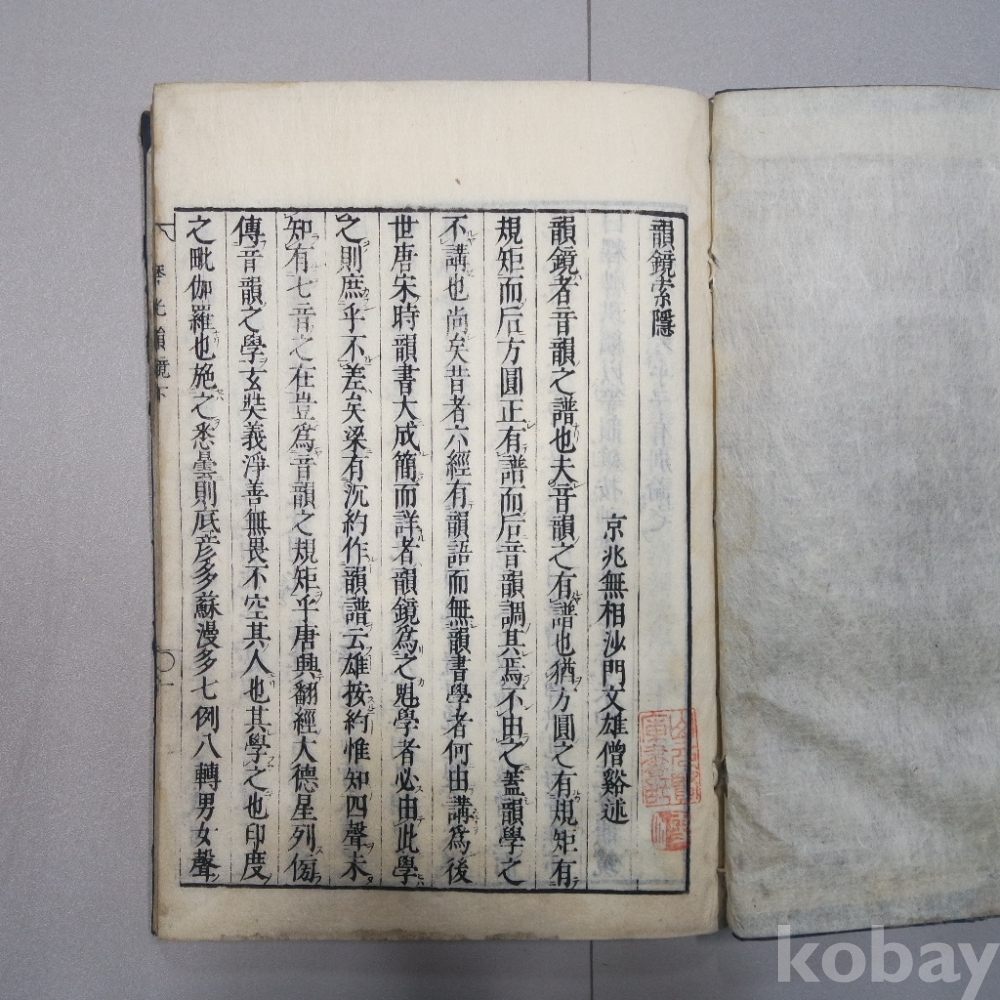 韻鏡索隱
京兆無相沙門文雄僧谿述
韻鏡者音韻之譜也夫音韻之有譜也猶方圓之有規矩有
規矩而后方圓正有譜而后音韻調其焉不由之蓋韻學之
不講也尚矣昔者六經有韻語而無韻書學者何由講為後
世唐宋時韻書大成簡而詳者韻鏡為之魁學者必由此學
之則庶乎不差矣梁有沉約作韻譜云雄按約惟知四聲未
知有七音之在豈為音韻之規矩乎唐興翻經大德星列傋
傳音韻之學玄奘義淨善無畏不空其人也其學之也印度
之毗伽羅也施之悉曇則底彥多蘇漫多七例八轉男女聲
光韻鏡下
kobay